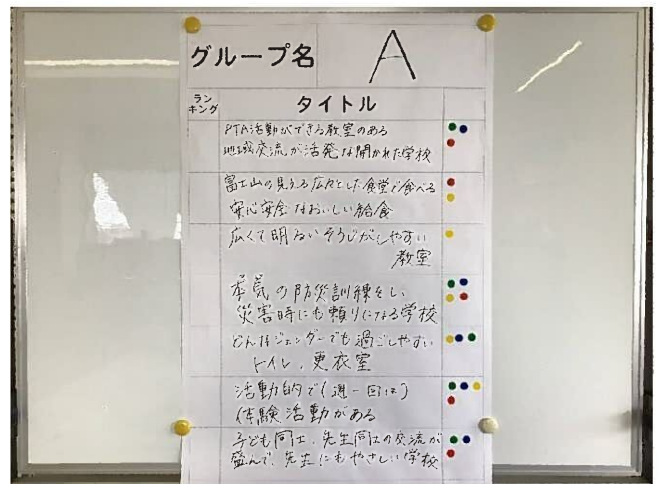 グループ名 A
ランキング タイトル
PTA活動ができる教室のある
地域交流が活発な開かれた学校
富士山の見える広々とした食堂で食べる
安心安全なおいしい給食
広くて明るいそうじがしやすい
教室
本気の防災訓練をし
災害時にも頼りになる学校
どんなジェンダーでも過ごしやすい
トイレ、更衣室
活動的で(週一回は)
体験活動がある
子ども同士、先生同士の交流が
盛んで、先生にもやさしい学校